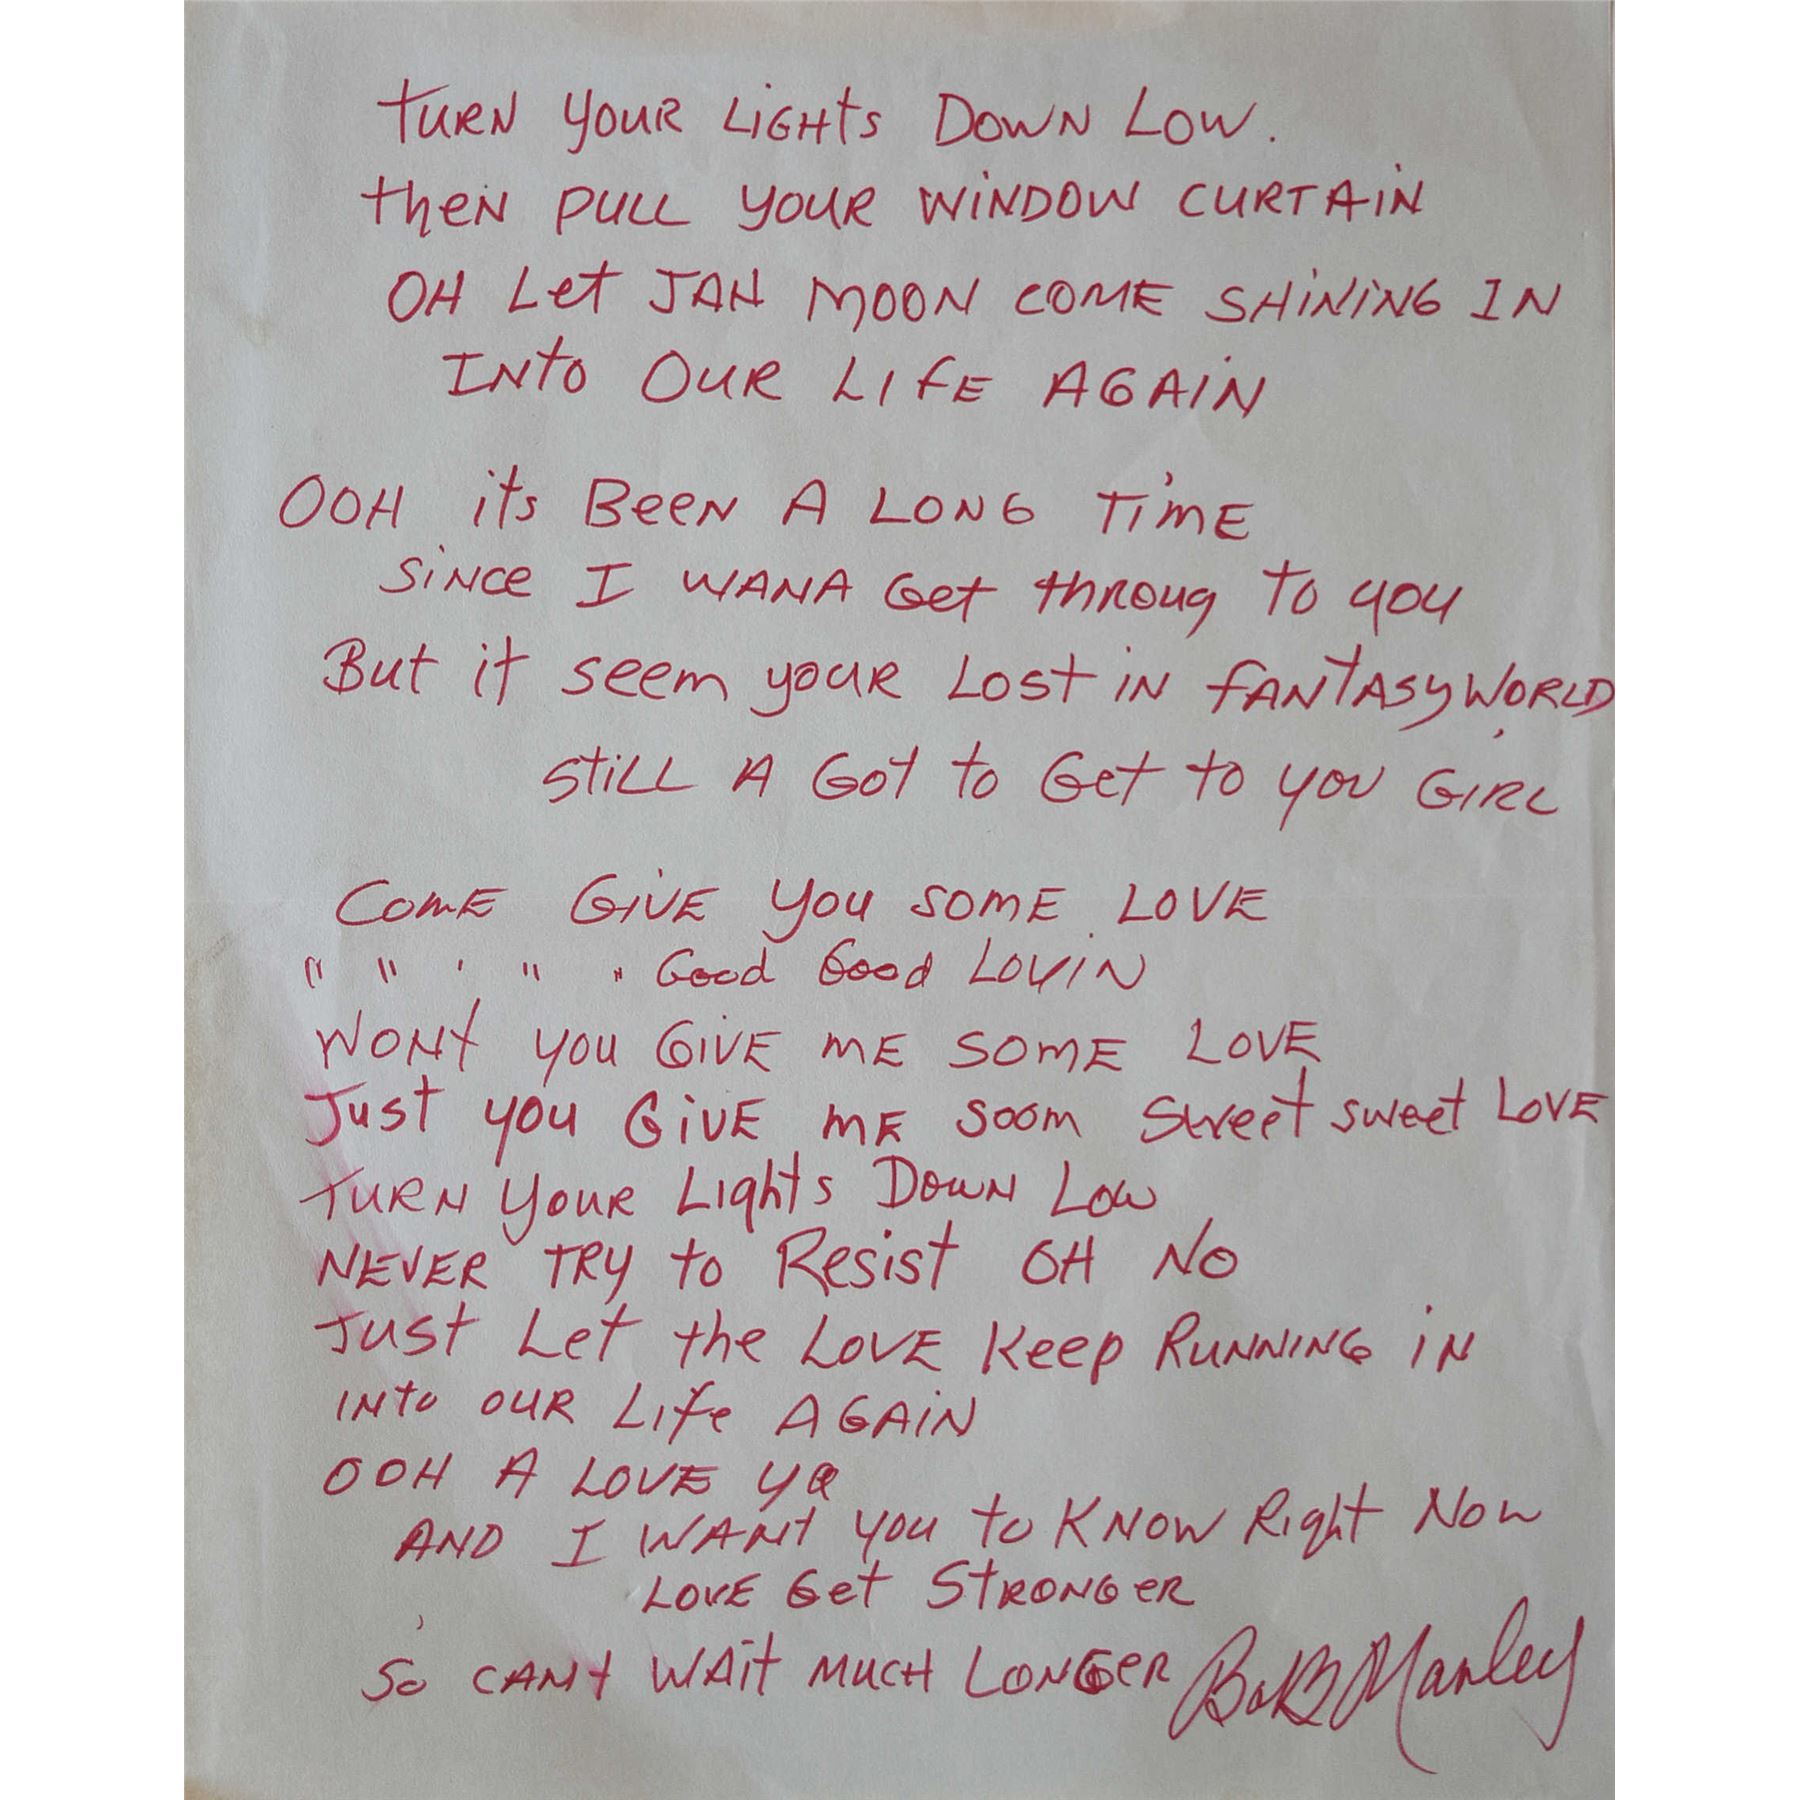 TURN YOUR LIGHTS DOWN LOW.
then PULL YOUR WINDOW CURTAIN
OH Let JAH MOON COME SHINING IN
INto OUR LIFE AGAIN
OOH its BeeN A LONG TiME
SiNce I WANA Get thROUg to you
But it seem youR Lost iN fANTASY WORLD
StiLL A Got to Get to you GIRL
ComE GiVE you somE LOVE
" " ' " " Good Good LOViN
WONt you GiVE mE SOmE LOVE
Just you GiVE mE soom Sweet sweet LOVE
TURN YOUR Lights DowN Low
NEVER TRY to Resist OH NO
Just Let the LOVE Keep RUNNiNG iN
iNto OUR Life AGAiN
OOH A LOVE YA
AND I WANt you to KNOW Right Now
LOVE Get STRONGeR
So CANt WAit MUCH LONGeR Bob Marley